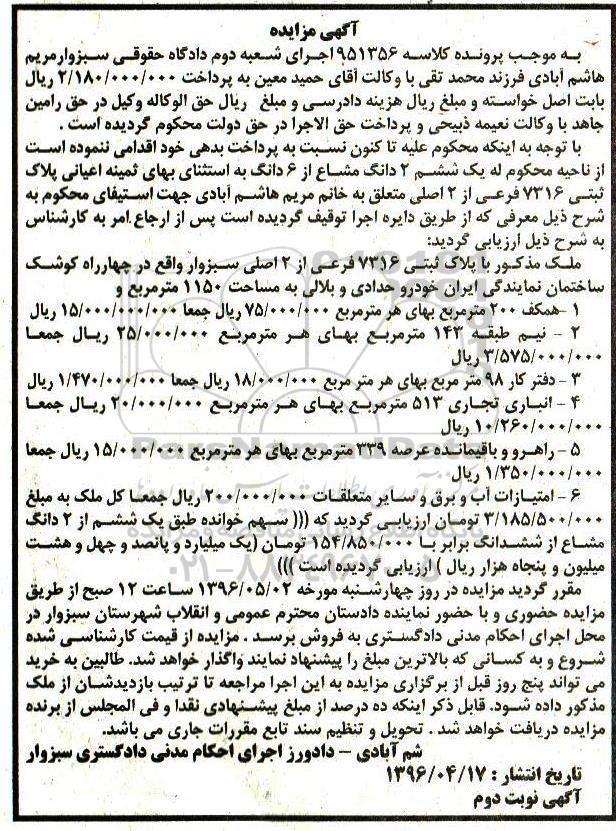 آگهی مزایده
به موجب پرونده کلاسه ۹۵۱۳۵۶ اجرای شعبه دوم دادگاه حقوقی سبزوارمریم
هاشم آبادی فرزند محمد تقی با وکالت آقای حمید معین به پرداخت ۲/۱۸۰/۰۰۰/۰۰۰ ریال
بابت اصل خواسته و مبلغ ریال هزینه دادرسی و مبلغ ریال حق الوکاله وکیل در حق رامین
جاهد با وکالت نعیمه ذبیحی و پرداخت حق الاجرا در حق دولت محکوم گردیده است .
با توجه به اینکه محکوم علیه تا کنون نسبت به پرداخت بدهی خود اقدامی ننموده است
از ناحیه محکوم له یک ششم ۲ دانگ مشاع از ۶ دانگ به استثنای بهای ثمینه اعیانی پلاک
ثبتی ۷۳۱۶ فرعی از ۲ اصلی متعلق به خانم مریم هاشم آبادی جهت استیفای محکوم به
شرح ذیل معرفی که از طریق دایره اجرا توقیف گردیده است پس از ارجاع امر به کارشناس
به شرح ذیل ارزیابی گردید:
ملک مذکور با پلاک ثبتی ۷۳۱۶ فرعی از ۲ اصلی سبزوار واقع در چهارراه کوشک
ساختمان نمایندگی ایران خودرو حدادی و بلالی به مساحت ۱۱۵۰ مترمربع و
۱ -همکف ۲۰۰ مترمربع بهای هر مترمربع ۷۵/۰۰۰/۰۰۰ ریال جمعا ۱۵/۰۰۰/۰۰۰/۰۰۰ ریال
۲ - نیم طبقه ۱۴۳ مترمربع بهای هر مترمربع ۲۵/۰۰۰/۰۰۰ ریال جمعا
۳/۵۷۵/۰۰۰/۰۰۰ ریال
۳ - دفتر کار ۹۸ متر مربع بهای هر متر مربع ۱۸/۰۰۰/۰۰۰ ریال جمعا ۱/۴۷۰/۰۰۰/۰۰۰ ریال
۴ - انباری تجاری ۵۱۳ مترمربع بهای هر مترمربع ۲۰/۰۰۰/۰۰۰ ریال جمعا
۱۰/۲۶۰/۰۰۰/۰۰۰ ریال
۵ - راهرو و باقیمانده عرصه ۳۳۹ مترمربع بهای هر مترمربع ۱۵/۰۰۰/۰۰۰ ریال جمعا
۱/۳۵۰/۰۰۰/۰۰۰ ریال
۶ - امتیازات آب و برق و سایر متعلقات ۲۰۰/۰۰۰/۰۰۰ ریال جمعا کل ملک به مبلغ
۳/۱۸۵/۵۰۰/۰۰۰ تومان ارزیابی گردید که ((( سهم خوانده طبق یک ششم از ۲ دانگ
مشاع از ششدانگ برابر با ۱۵۴/۸۵۰/۰۰۰ تومان (یک میلیارد و پانصد و چهل و هشت
میلیون و پنجاه هزار ریال ) ارزیابی گردیده است )))
مقرر گردید مزایده در روز چهارشنبه مورخه ۱۳۹۶/۰۵/۰۲ ساعت ۱۲ صبح از طریق
مزایده حضوری و با حضور نماینده دادستان محترم عمومی و انقلاب شهرستان سبزوار در
محل اجرای احکام مدنی دادگستری به فروش برسد . مزایده از قیمت کارشناسی شده
شروع و به کسانی که بالاترین مبلغ را پیشنهاد نمایند واگذار خواهد شد. طالبین به خرید
می تواند پنج روز قبل از برگزاری مزایده به این اجرا مراجعه تا ترتیب بازدیدشان از ملک
مذکور داده شود. قابل ذکر اینکه ده درصد از مبلغ پیشنهادی نقدا و فی المجلس از برنده
مزایده دریافت خواهد شد . تحویل و تنظیم سند تابع مقررات جاری می باشد.
شم آبادی – دادورز اجرای احکام مدنی دادگستری سبزوار
تاریخ انتشار : ۱۳۹۶/۰۴/۱۷
آگهی نوبت دوم
ParsNamadData